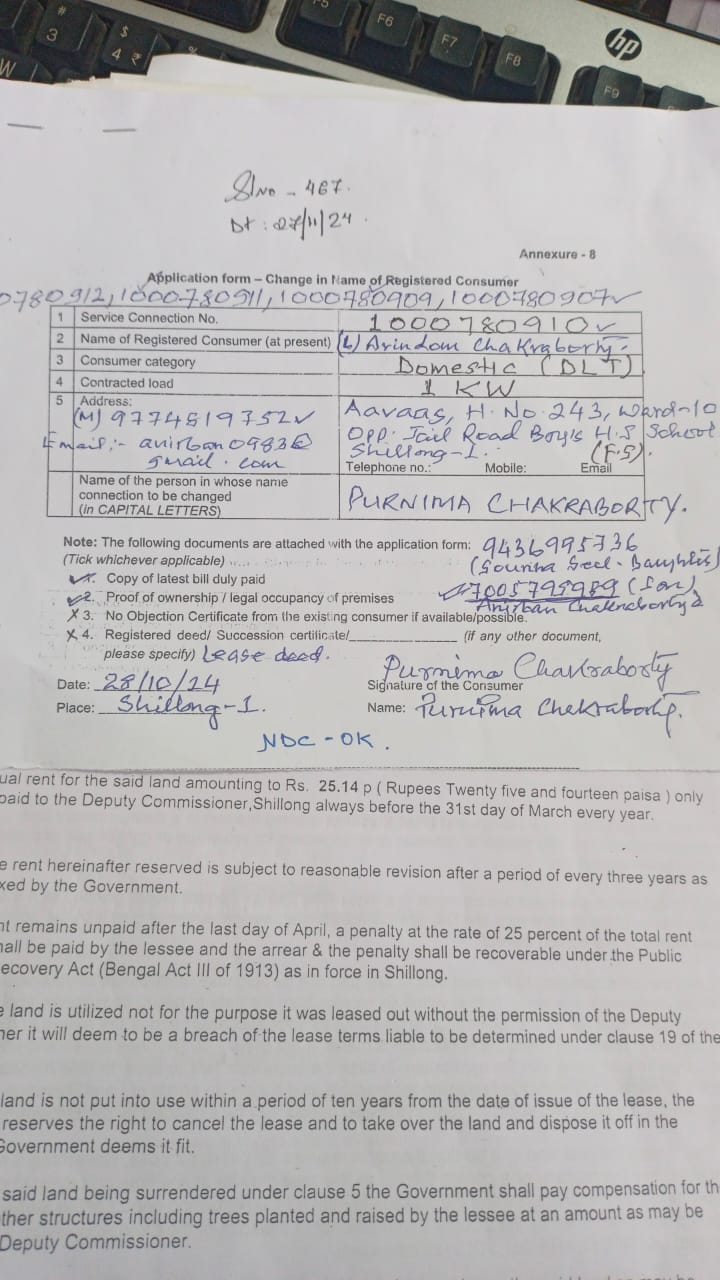 #
3
$
4 ₹
%
W
F5
F6
F7
F8
F9
hp
Sl No - 467.
Dt : 27/11/24.
Annexure - 8
Application form – Change in Name of Registered Consumer
0780912, 1000780911, 1000780909, 1000780907
1 Service Connection No. 1000780910
2 Name of Registered Consumer (at present) (L) Arindom Chakraborty.
3 Consumer category Domestic (DLT)
4 Contracted load 1 KW
5 Address: Aavaas, H. No. 243, Ward-10
(M) 9774519752 Opp. Jail Road Boy's H.S School
Email:- anirban0983@ Shillong-1. (F.S).
gmail.com Telephone no.: Mobile: Email
Name of the person in whose name
connection to be changed PURNIMA CHAKRABORTY.
(in CAPITAL LETTERS)
Note: The following documents are attached with the application form: 9436995736
(Tick whichever applicable)
1. Copy of latest bill duly paid 7005799989 (Son)
2. Proof of ownership / legal occupancy of premises Anirban
X 3. No Objection Certificate from the existing consumer if available/possible.
X 4. Registered deed/ Succession certificate/ (if any other document,
please specify) Lease deed. Purnima Chakraborty
Date: 28/10/24 Signature of the Consumer
Place: Shillong-1. Name: Purnima Chakraborty.
NDC - OK.
ual rent for the said land amounting to Rs. 25.14 p ( Rupees Twenty five and fourteen paisa ) only
paid to the Deputy Commissioner,Shillong always before the 31st day of March every year.
e rent hereinafter reserved is subject to reasonable revision after a period of every three years as
xed by the Government.
nt remains unpaid after the last day of April, a penalty at the rate of 25 percent of the total rent
hall be paid by the lessee and the arrear & the penalty shall be recoverable under the Public
ecovery Act (Bengal Act III of 1913) as in force in Shillong.
e land is utilized not for the purpose it was leased out without the permission of the Deputy
ner it will deem to be a breach of the lease terms liable to be determined under clause 19 of the
land is not put into use within a period of ten years from the date of issue of the lease, the
reserves the right to cancel the lease and to take over the land and dispose it off in the
Government deems it fit.
said land being surrendered under clause 5 the Government shall pay compensation for th
ther structures including trees planted and raised by the lessee at an amount as may be
Deputy Commissioner.